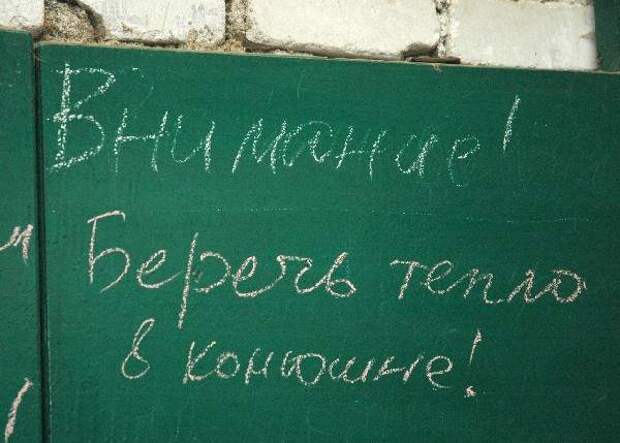 Внимание!
Беречь тепло
в конюшне!